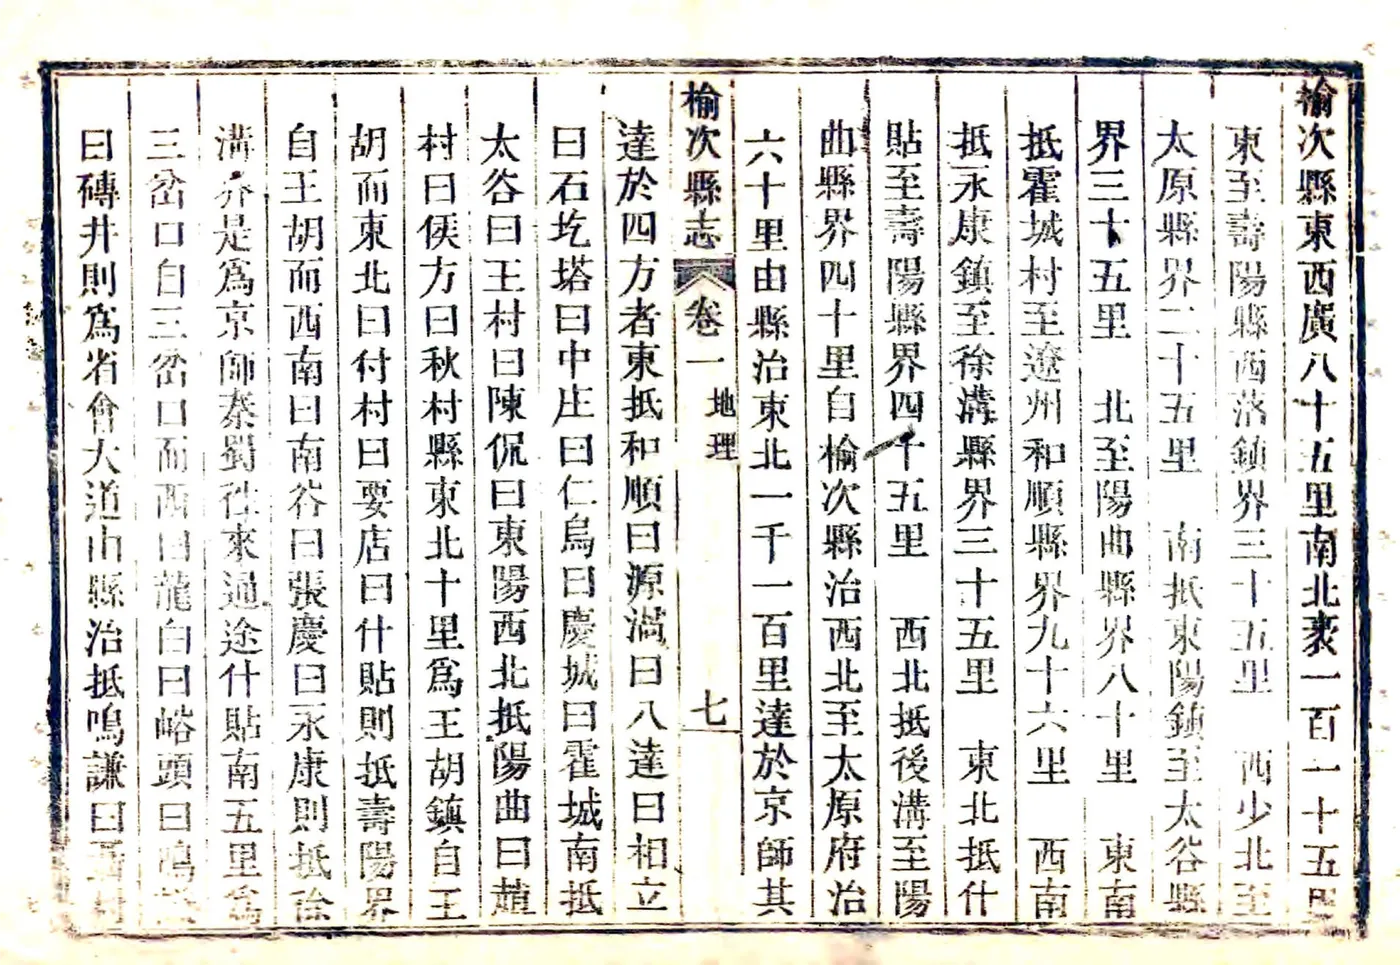 榆次縣東西廣八十五里南北袤一百一十五里
東至壽陽縣西洛鎮界三十五里　西少北至
太原縣界二十五里　南抵東陽鎮至太谷縣
界三十五里　北至陽曲縣界八十里　東南
抵霍城村至遼州和順縣界九十六里　西南
抵永康鎮至徐溝縣界三十五里　東北抵什
貼至壽陽縣界四十五里　西北抵後溝至陽
曲縣界四十里自榆次縣治西北至太原府治
六十里由縣治東北一千一百里達於京師其
榆次縣志　卷一　地理　七
達於四方者東抵和順曰源渦曰八達曰相立
曰石圪塔曰中庄曰仁烏曰慶城曰霍城南抵
太谷曰王村曰陳侃曰東陽西北抵陽曲曰趙
村曰侯方曰秋村縣東北十里爲王胡鎮自王
胡而東北曰付村曰要店曰什貼則抵壽陽界
自王胡而西南曰南谷曰張慶曰永康則抵徐
溝界是爲京師秦蜀往來通途什貼南五里爲
三岔口自三岔口而西曰龍白曰峪頭曰鳴謙
曰磚井則爲省會大道由縣治抵鳴謙曰聶村